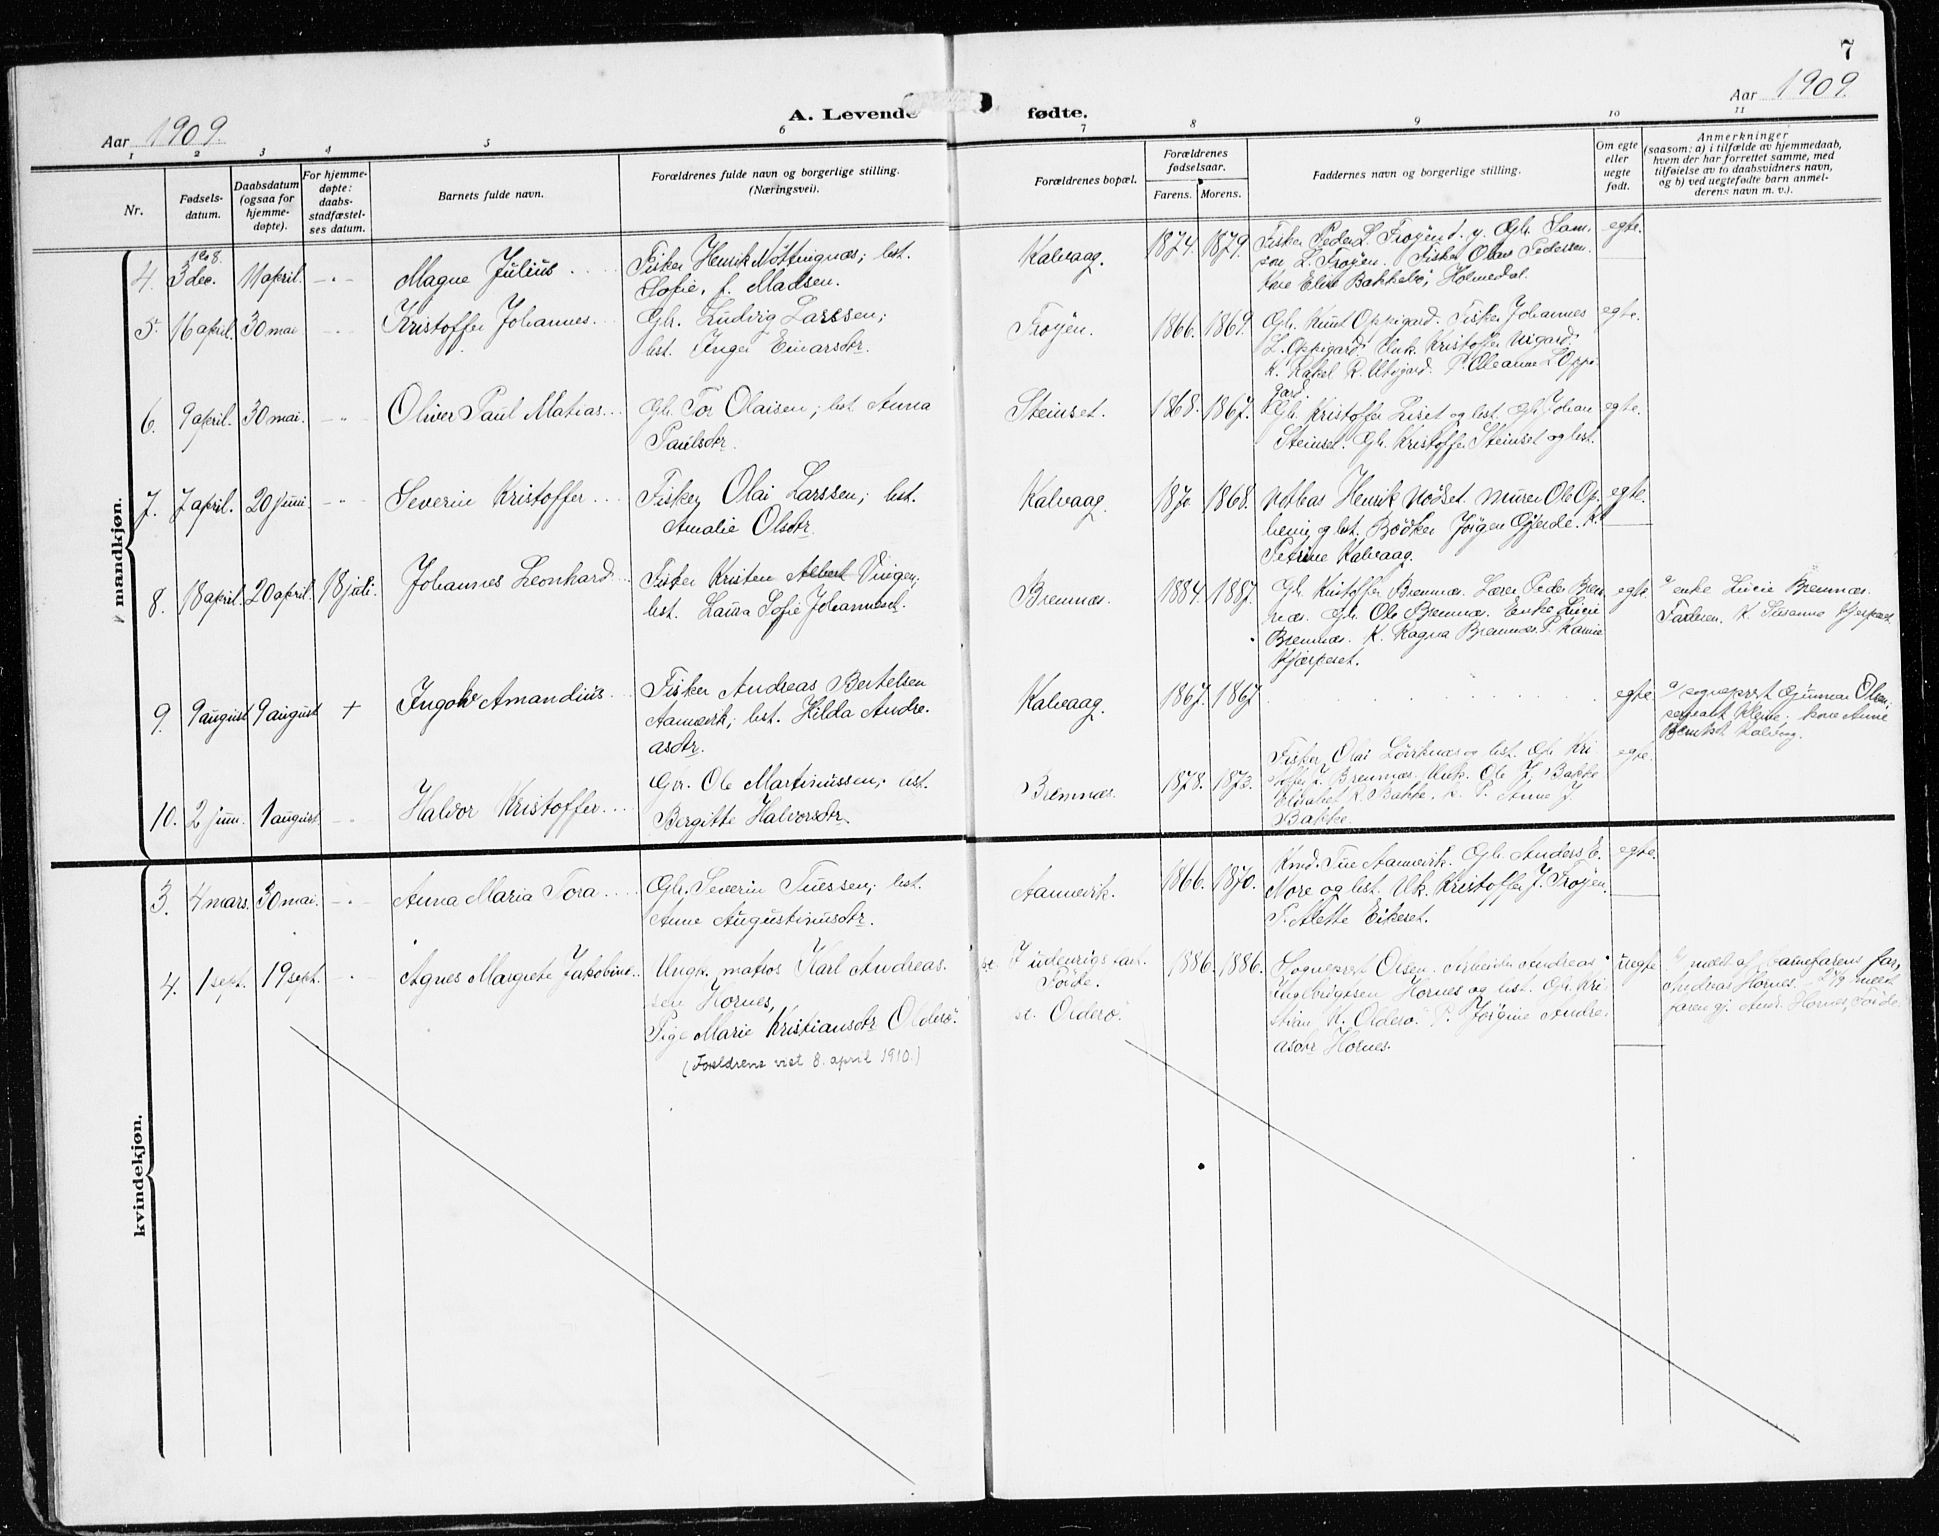 7
Aar 1909.
A. Levende fødte.
Aar 1909
1 2 3 4 5 6 7 8 9 10 11
Nr.
Fødsels-
datum.
Daabsdatum
(ogsaa for
hjemme-
døpte).
For hjemme-
døpte:
daabs-
stadfæstel-
ses datum.
Barnets fulde navn.
Forældrenes fulde navn og borgerlige stilling.
(Næringsvei).
Forældrenes bopæl.
Forældrenes
fødselsaar.
Farens. Morens.
Faddernes navn og borgerlige stilling.
Om egte
eller
uegte
født.
Anmerkninger
(saasom: a) i tilfælde av hjemmedaab,
hvem der har forrettet samme, med
tilføielse av to daabsvidners navn,
og b) ved uegtefødte barn anmel-
derens navn m. v.).
mandkjøn.
4. 1908. 3 dec. 11 april. -"- Magne Julius
Fisker Henrik Nøttingnæs; hst.
Sofie, f. Madsen.
Kalvaag. 1874. 1879.
Fisker Peder L. Frøyen d. y. Gbr. Sam-
son L. Frøyen. Fisker Olav Pedersen.
Kone Elise Bakkebø, Holmedal.
egte.
5. 16 april. 30 mai -"- Kristoffer Johannes.
Gbr. Ludvig Larssen;
hst. Inger Einarsdtr.
Frøyen. 1866. 1869.
Gbr. Knut Oppigard. Fisker Johannes
L. Oppigard. Unk. Kristoffer Nigard.
K. Rakel R. Utigard. P. Oleanne L. Oppi-
gard.
egte.
6. 9 april. 30 mai. -"- Oliver Paul Matias
Gbr. Tor Olaisen; hst. Anna
Paulsdtr.
Steinset. 1868. 1867.
Gbr. Kristoffer Liset og hst. Gbr. Johan
Steinset. Gbr. Kristoffer Steinset og hst.
egte.
7. 7 april. 20 juni -"- Severin Kristoffer
Fisker Olai Larssen; hst.
Amalie Olsdtr.
Kalvaag. 1870 1868.
Notbas Henrik Nødset. Murer Ole Op-
heim og hst. Bødker Jørgen Gjerde. K.
Petrine Kalvaag.
egte.
8. 18 april. 20 april. 18 juli. Johannes Leonhard
Fisker Kristen Albert Vingen;
hst. Laura Sofie Johannesd.
Bremnæs. 1884. 1887.
Gbr. Kristoffer Bremnæs. Lærer Peder Brem-
næs. Gbr. Ole Bremnæs. Enke Lucie
Bremnæs. K. Ragna Bremnæs. P. Kamie
Hjærpeset.
egte.
a/ enke Lucie Bremnæs.
Faderen. K. Susanne Hjerpeset
9. 9 august 9 august + Ingolv Amandius
Fisker Andreas Bertelsen
Aamevik; hst. Hilda Andre-
asdtr.
Kalvaag. 1867. 1867
egte
a/ sogneprest Gunnar Olsen;
kone Anne
Kalvaag.
10. 2 juni. 1 august -"- Halvor Kristoffer
Gbr. Ole Martinussen; hst.
Bergitte Halvorsdtr.
Bremnæs. 1878. 1873.
Fisker Olai Lørknæs og hst. Gbr. Kri-
stoffer L. Bremnæs. Unk. Ole J. Bakke
Elisabet R. Bakke. P. Anne J.
Bakke.
egte.
kvindekjøn.
3. 4 mars. 30 mai. -"- Anna Maria Tora
Gbr. Severin Tuessen; hst.
Anne Augustinusdtr.
Aamevik. 1866. 1870.
Kmd. Tue Aamevik. Gbr. Anders E.
Nore og hst. Uk. Kristoffer J. Frøyen.
P. Alette Eikeset.
egte.
4. 1 sept. 19 sept. -"- Agnes Margrete Jakobine
Ungk. matros Karl Andreas-
sen Hornes,
Pige Marie Kristiansdtr Olderø.
(Foreldrene viet 8. april 1910.)
I udenrigs fart.
Førde.
st. Olderø.
1886. 1886.
Sogneprest Olsen. Arbeider Andreas
Ingebrigtsen Hornes og hst. Gbr. Kri-
stian K. Olderø. P. Jørgine Andre-
asdtr Hornes.
uegte
b/ meldt af barnefarens far,
Andreas Hornes.
faren gj. Andr. Hornes, Førde.